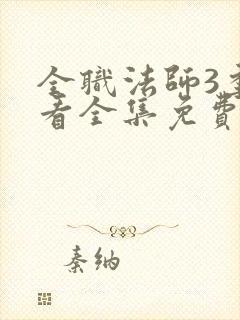 全職法師3季
看全集免費
秦納